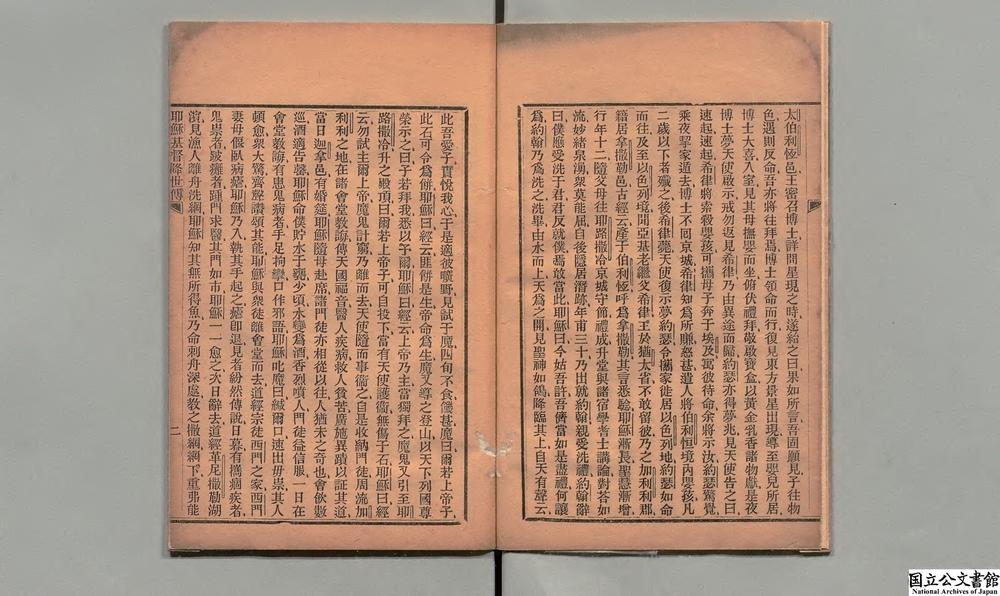 太伯利恆邑王密召博士詳問星現之時遂紿之曰果如所言吾固願見子往物
色遇則反命吾亦將往拜焉博士領命而行復見東方景星出現導至嬰兒所居
博士大喜入室見其母撫嬰而坐俯伏禮拜敬啟寶盒以黃金乳香諸物獻是夜
博士夢天使啟示戒勿返見希律乃由異途而歸約瑟亦得夢兆見天使告之曰
速起速起希律將索殺嬰孩可攜母子奔于埃及寓彼待命余將示汝約瑟驚覺
乘夜挈家遁去博士不回京城希律知為所賺怒甚遣人將伯利恒境內嬰孩凡
二歲以下者殲之後希律薨天使復示夢約瑟令攜家徙居以色列地約瑟如命
而往及至以色列境聞亞基老繼父希律王於猶太省不敢留彼乃之加利利郡
籍居拿撒勒邑古經云產于伯利恆呼為拿撒勒其言悉驗耶穌漸長聖慧漸增
行年十二隨父母往耶路撒冷京城守節禮成升堂與諸宿學考士講論對答如
流妙緒泉湧衆莫能屈自後隱居潛跡年甫三十乃出就約翰親受洗禮約翰辭
曰僕應受洗于君君反就僕焉敢當此耶穌曰今姑吾許吾儕當如是盡禮何讓
為約翰乃為之洗洗畢由水而上天為之開見聖神如鴿降臨其上自天有聲云
此吾愛子實悅我心于是適彼曠野見試于魔四旬不食饑甚魔曰爾若上帝子
此石可令為餅耶穌曰經云匪餅是生帝命為生魔又導之登山以天下列國尊
榮示之曰子若拜我悉以予爾耶穌曰經云上帝乃主當獨拜之魔鬼又引至耶
路撒冷升之殿頂曰爾若上帝子可自投下當有天使護衛無傷于石耶穌曰經
云勿試主爾上帝魔鬼計窮乃離而去天使隨而事衛之自是收納門徒周流加
利利之地在諸會堂教誨傳天國福音醫人疾病救人貧苦廣施異蹟以証其道
當日迦拿邑有婚筵耶穌隨母赴席諸門徒亦相從以往人猶未之奇也會飲數
巡酒適告罄耶穌命僕貯水于甕少頃水變為酒香烈噴人門徒益信服一日在
會堂教誨有患鬼病者手足拘攣口作邪語耶穌叱魔曰緘爾口速出毋祟其人
頓愈衆大驚齊聲讚頌其能耶穌與衆徒離會堂而去道經宗徒西門之家西門
妻母偃臥病瘧耶穌乃入執其手起之瘧卽退見者紛然傳說日暮有攜痼疾者
鬼祟者跛癱者踵門求醫其門如巿耶穌一一愈之次日辭去道經革尼撒勒湖
濱見漁人離舟洗網耶穌知其無所得魚乃命刺舟深處教之撒網網下重弗能
耶穌基督降世傳
二
国立公文書館
National Archives of Japan